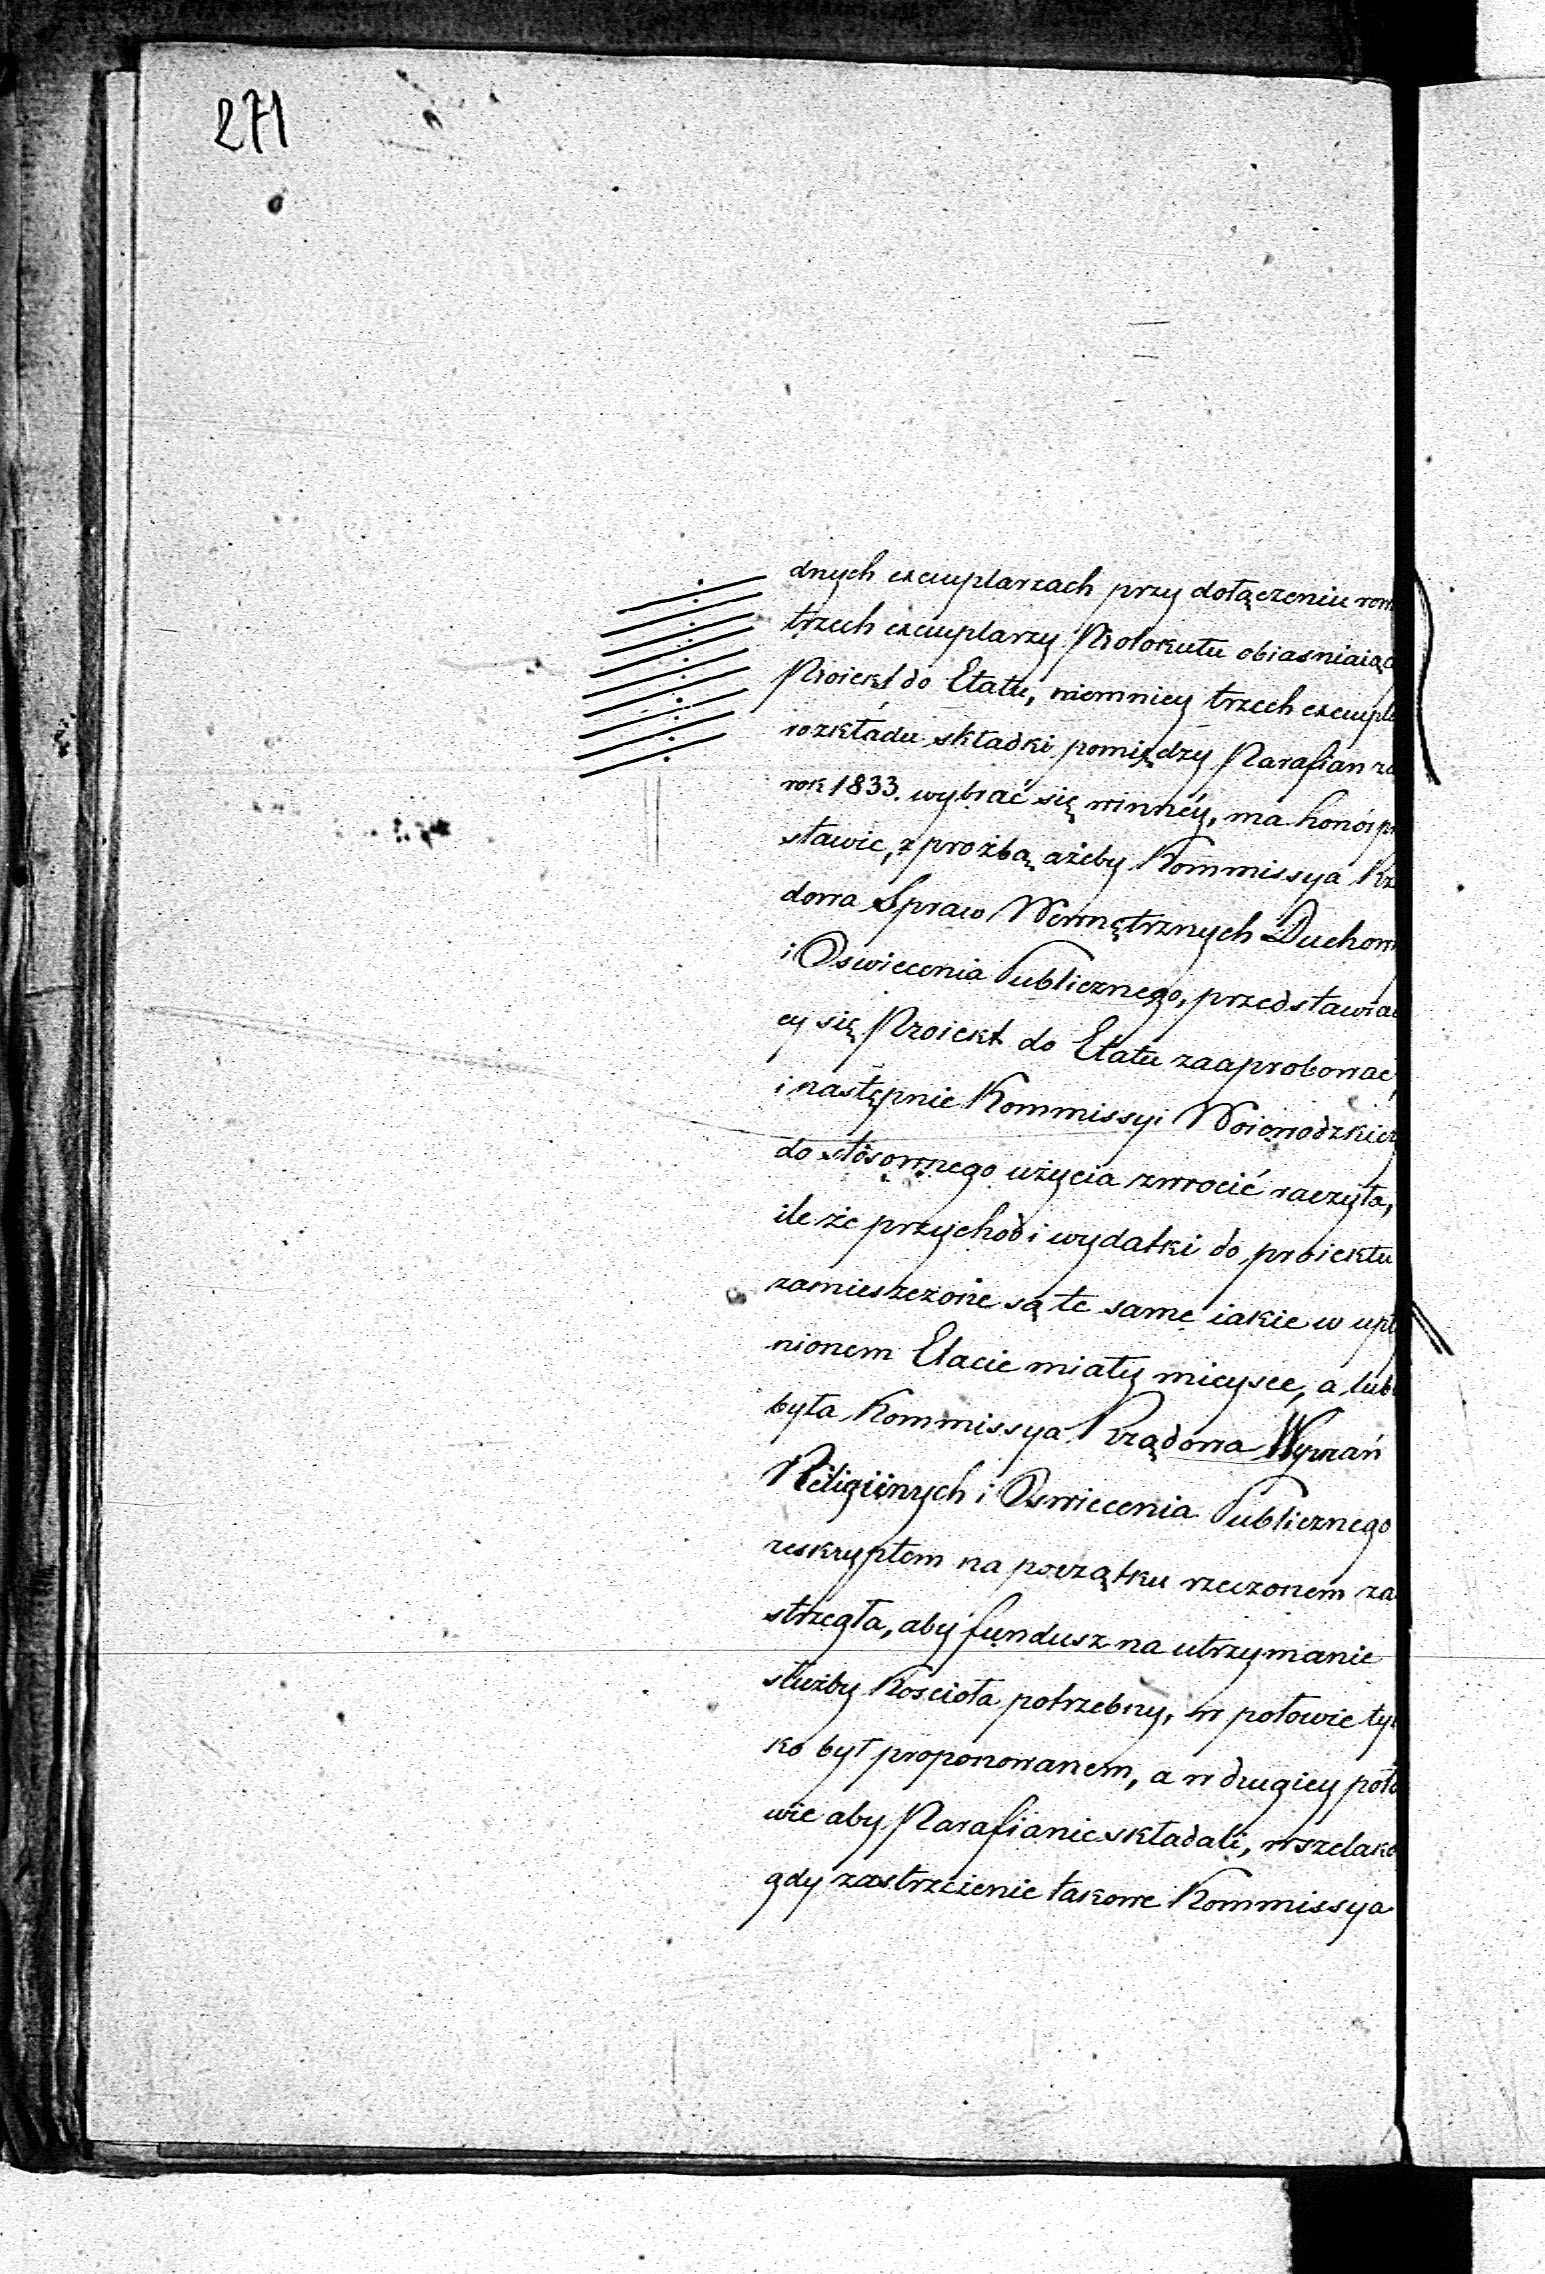 271
dnych exemplarzach przy dołączeniu rów
trzech exemplarzy Protokułu obiasniaiąc
Proiekt do Etatu, niemniey trzech exempl
rozkładu składki pomiędzy Parafian za
rok 1833. wybrać się winnéy, ma honor prz
stawic, z proźbą ażeby Kommissya Rz
dowa Spraw Wewnętrznych Duchow
i Oswiecenia Publicznego, przedstawiaią
cy się Proiekt do Etatu zaaprobować,
i następnie Kommissyi Woiewodzkiey
do stósownego użycia zwrocić raczyła,
ile że przychod i wydatki do proiektu
zamieszczone są te same iakie w upły
nionem Etacie miały mieysce, a lubo
była Kommissya Rządowa Wyznań
Religiinych i Oswiecenia Publicznego
reskryptem na początku rzeczonem za
strzegła, aby fundusz na utrzymanie
służby Kościoła potrzebny, w połowie tyl
ko był proponowanem, a w drugiey poło
wie aby Parafianie składali, wszelako
gdy zastrzeżenie takowe Kommissya